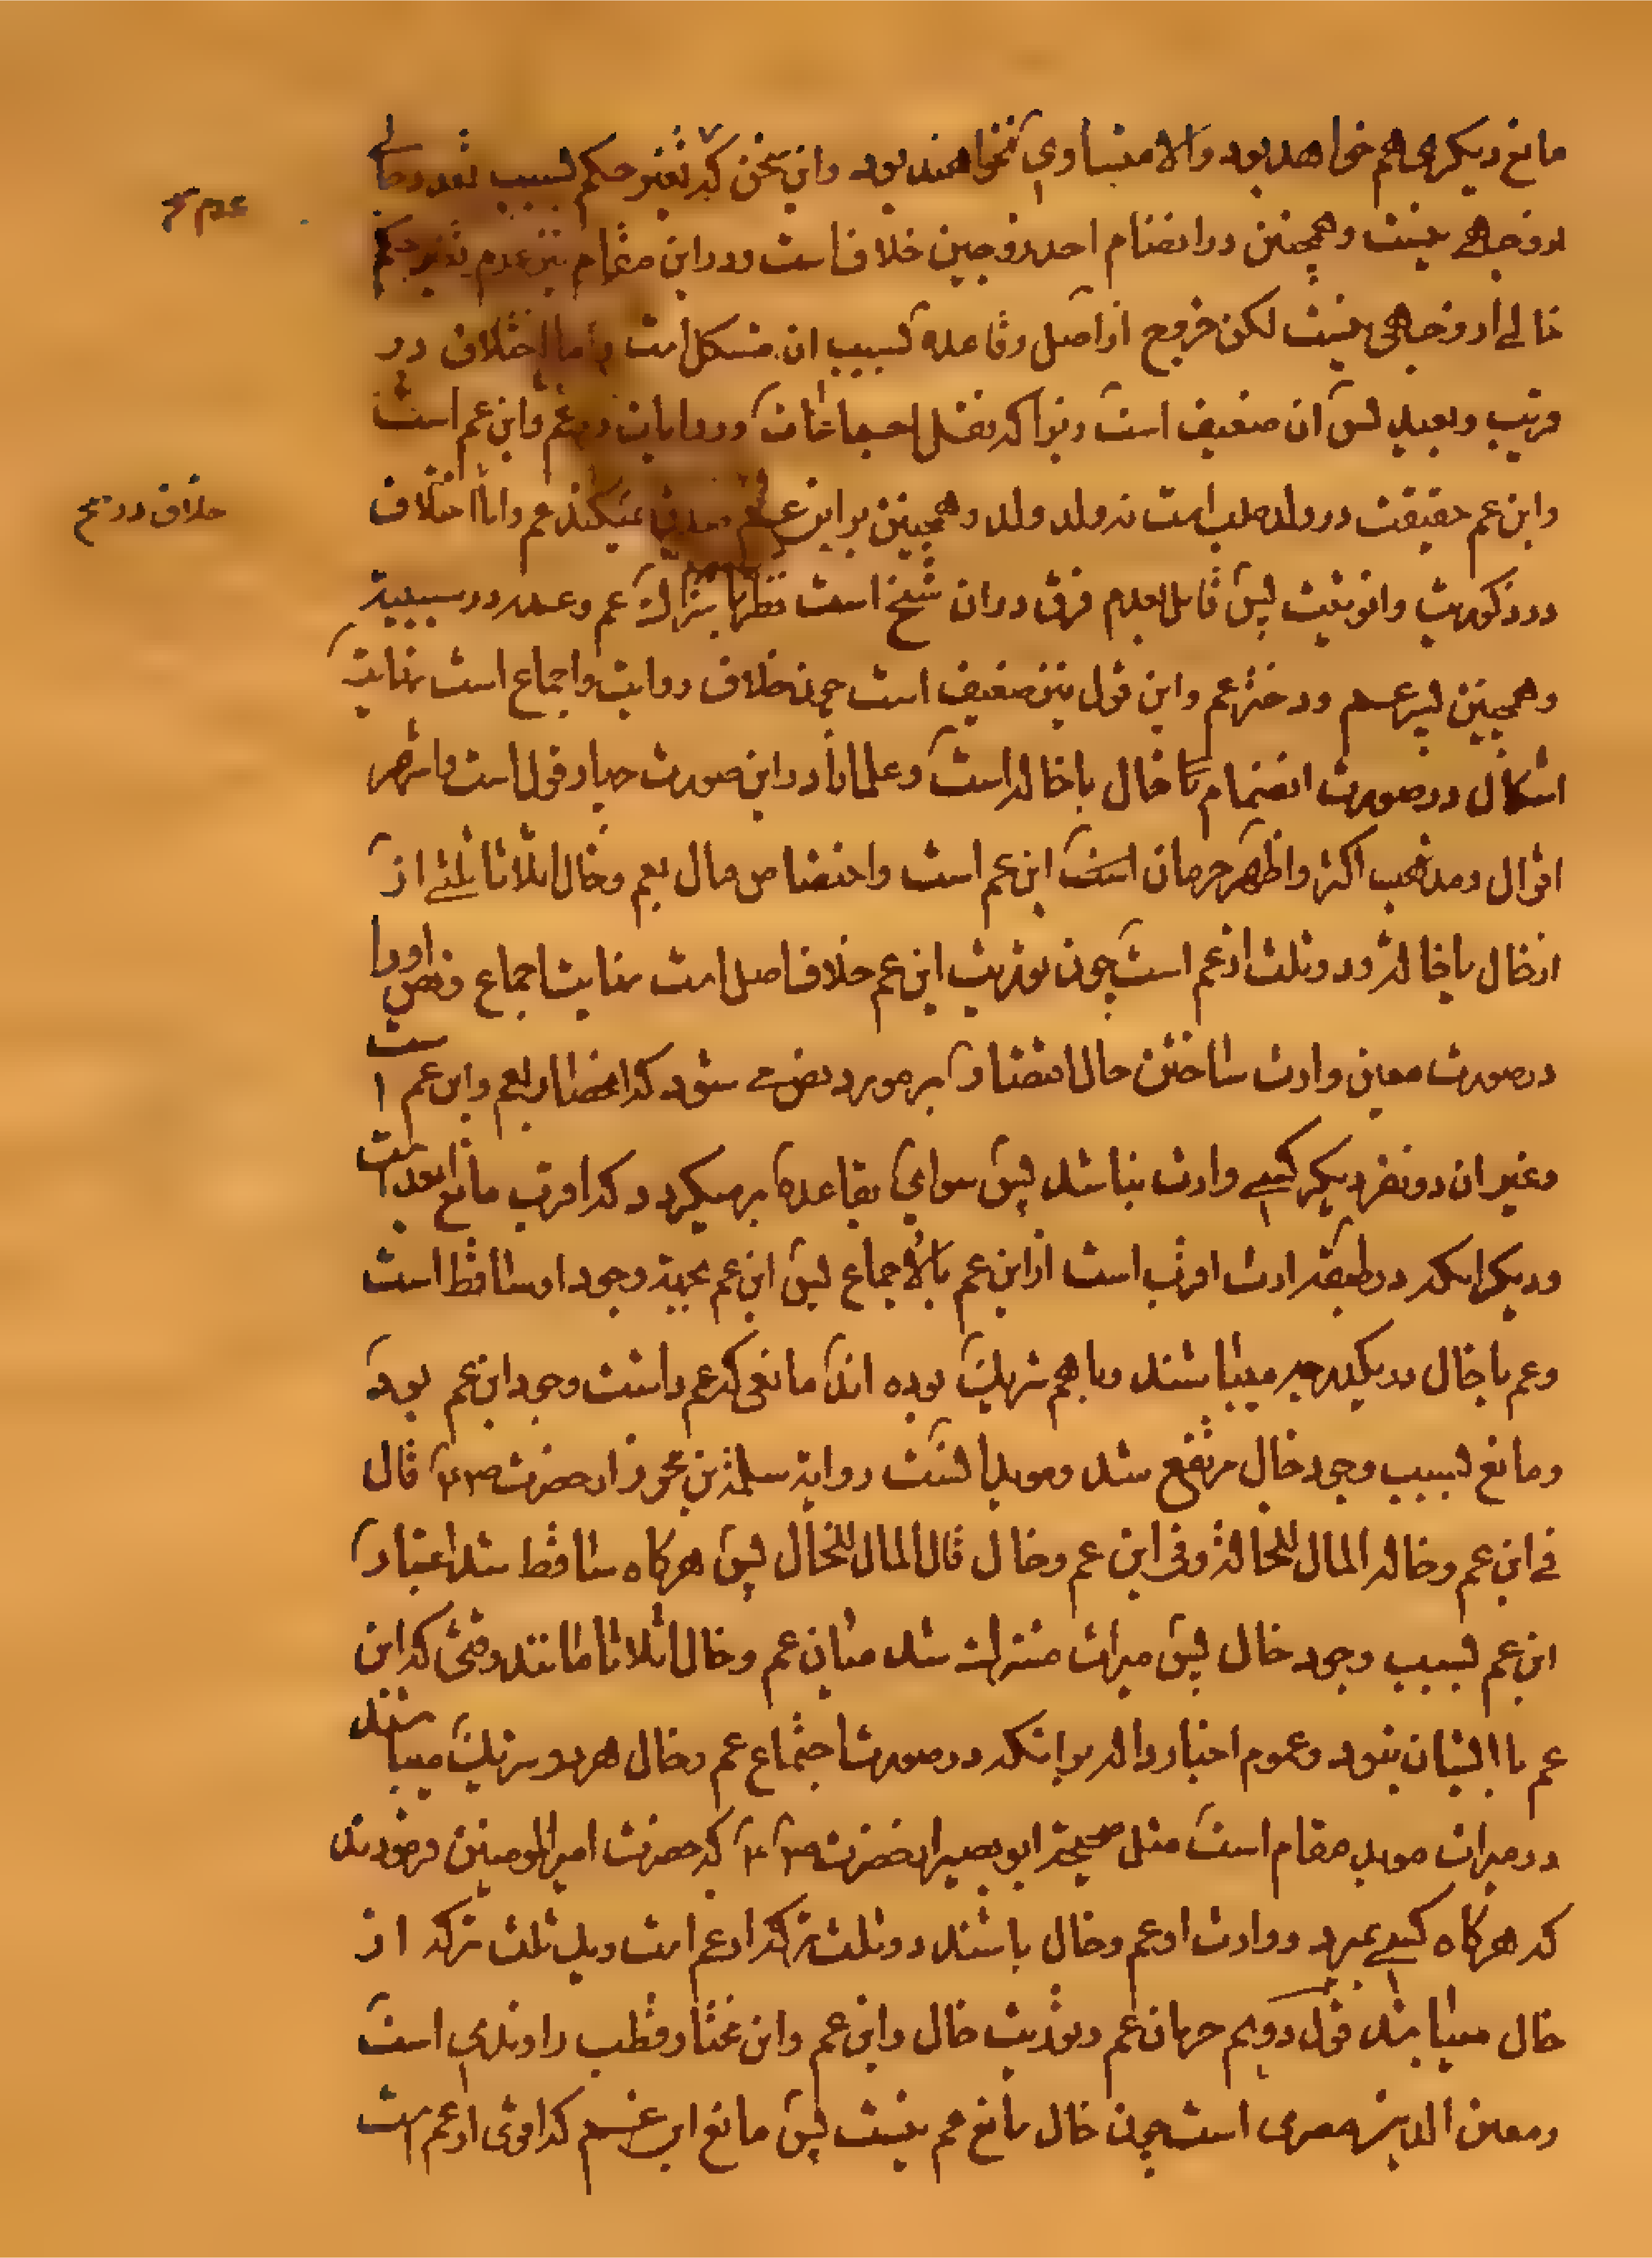 مانع دیکری هم خواهد بود والا متساوی نخواهند بود واین سخن که تغیر حکم بسبب تعدد خالی
از وجهی نیست وهمچنین در انضمام احد زوجین خلافست ودر این مقام نیز عدم تغیر حکم
عدم تغیر
خالی از وجهی نیست لکن خروج از اصل وقاعده بسبب ان مشکل است واما اختلاف در
قریب وبعید پس ان ضعیف است زیرا که نقل اجماعات وروایات در عم وابن عم است
وابن عم حقیقت در ولد صلب است نه ولد ولد وهمچنین بر ابن عم صدق نمیکند عم واما اختلاف
خلاف در
در ذکوریت وانوثیت پس قائل بعدم فرق در ان شیخ است نظر باشتراک عم وعمه در سببیة
وهمچنین پسر عم ودختر عم واین قول نیز ضعیف است چون خلاف روایت واجماع است نهایت
اشکال در صورت انضمام خال یا خاله است وعلما را در این صورت چهار قول است واشهر
اقوال ومذهب اکثر واظهر حرمان ابن عم است واختصاص مال بعم وخال اثلاثا ثلثی از
از خال یا خاله ودو ثلث از عم است چون توریث ابن عم خلاف اصل است نهایت اجماع ونص او را
در صورت معین وارث ساختن حال اقتصار بر مورد نص می شود که انحصار بعم وابن عم است
وغیر ان دو نفر دیکر کسی وارث نباشد پس سوای بقاعده بر میکردد که اقرب مانع ابعد است
ودیکر انکه در طبقه ارث اقرب است از ابن عم بالاجماع پس ابن عم بجهة وجود او ساقط است
وعم با خال در یکدرجه میباشند وبا هم شریک بوده اند مانعی که عم داشت وجود ابن عم بود
ومانع بسبب وجود خال مرتفع شد وموید انست روایة سلمة بن محرز از حضرت ص ع قال
فی ابن عم وخاله المال للخالة وفی ابن عم وخال قال المال للخال پس هرکاه ساقط شد اعتبار
ابن عم بسبب وجود خال پس میراث مشترک شد میان عم وخال اثلاثا مانند وقتی که ابن
عم با ایشان نبود وعموم اخبار داله بر اینکه در صورت اجتماع عم وخال هر دو شریک میباشند
در میراث موید مقام است مثل صحیحة ابو بصیر از حضرت ص ع که حضرت امیر المومنین فرمودند
که هرکاه کسی بمیرد ووارث او عم وخال باشند دو ثلث ترکه از عم است ویک ثلث ترکه از
خال میباشد قول دویم حرمان عم وتوریث خال وابن عم واین مختار قطب راوندی است
ومعین الدین مصری است چون خال مانع عم نیست پس مانع ابن عم که اقوی از عم است